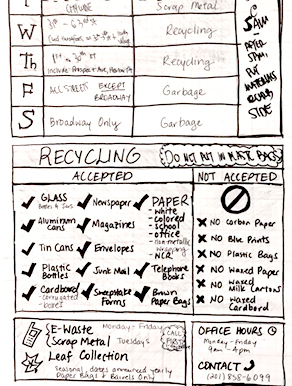 T
Scrap Metal
W
Recycling
Th
Recycling
F
ALL STREETS EXCEPT
BROADWAY
Garbage
S
Broadway Only
Garbage
5AM
AFTER
5PM
PUT
MATERIALS
CURB
SIDE
RECYCLING
DO NOT PUT IN PLASTIC BAGS
ACCEPTED
NOT ACCEPTED
GLASS
Bottles & Jars
Aluminum
Cans
Tin Cans
Plastic
Bottles
Cardboard
- corrugated
- boxes
Newspaper
Magazines
Envelopes
Junk Mail
Sweepstake
Forms
PAPER
- white
- colored
- school
- office
- non-metallic
wrapping
- NCR
Telephone
Books
Brown
Paper Bags
NO Carbon Paper
NO Blue Prints
NO Plastic Bags
NO Waxed Paper
NO Waxed
Milk Cartons
NO Waxed
Cardboard
E-Waste Monday - Friday
Scrap Metal Tuesdays
CALL
FIRST
Leaf Collection
Seasonal, dates announced yearly
Paper Bags & Barrels Only
OFFICE HOURS
Monday - Friday
9am - 4pm
CONTACT
(201) 858-6099